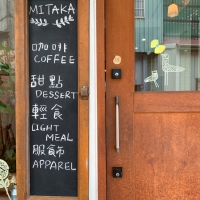 MITAKA
咖啡
COFFEE
甜點
DESSERT
輕食
LIGHT
MEAL
服飾
APPAREL